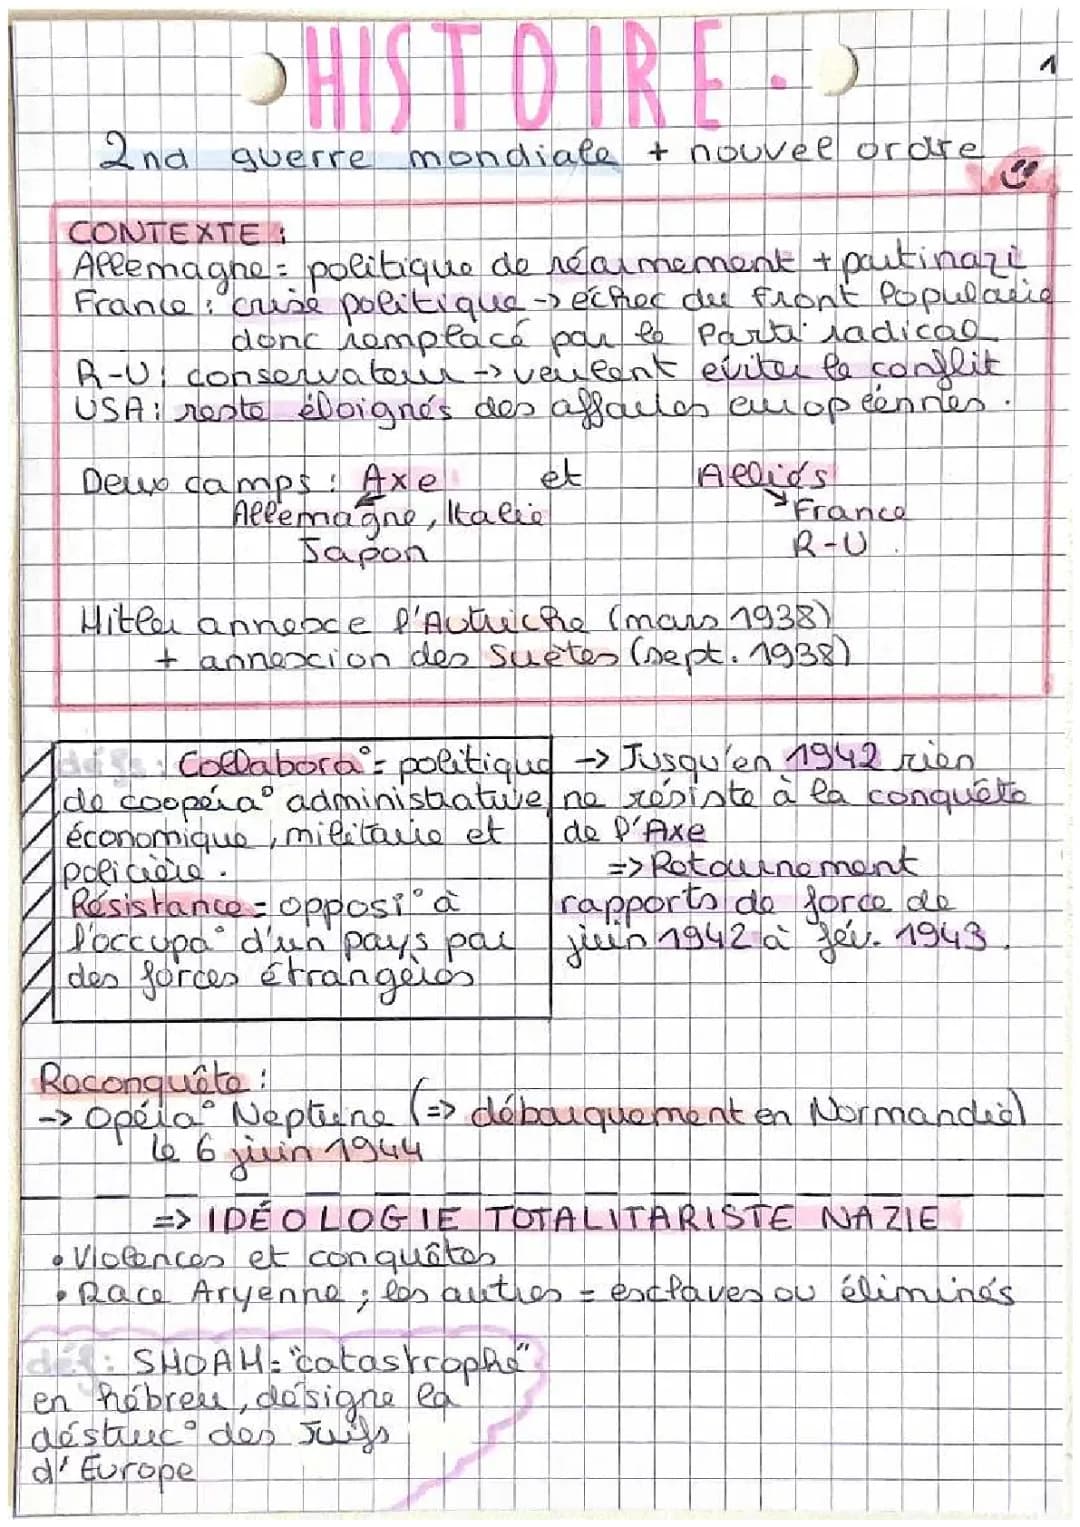 HISTOIRE.
1
2nd guerre mondiale + nouvel ordre
CONTEXTE :
Allemagne = politique de réarmement + parti nazi
France : crise politique -> échec du Front Populaire
donc remplacé par le Parti radical
R-U : conservateur -> veulent éviter le conflit
USA : reste éloignés des affaires européennes.
Deux camps : Axe et Alliés
Allemagne, Italie
Japon
France
R-U.
Hitler annexce l'Autriche (mars 1938)
+ annexcion des Suètes (sept. 1938)
défs : Collabora° = politique
de coopéra° administrative
économique, militaire et
policière.
Résistance = opposi° à
l'occupa° d'un pays par
des forces étrangères
-> Jusqu'en 1942 rien
ne résiste à la conquête
de l'Axe
=> Retournement
rapports de force de
juin 1942 à fév. 1943.
Reconquête :
-> Opéra° Neptune (=> débarquement en Normandie)
le 6 juin 1944
=> IDÉOLOGIE TOTALITARISTE NAZIE
• Violences et conquêtes
• Race Aryenne ; les autres = esclaves ou éliminés
déf : SHOAH = "catastrophe"
en hébreu, désigne la
déstruc° des Juifs
d'Europe